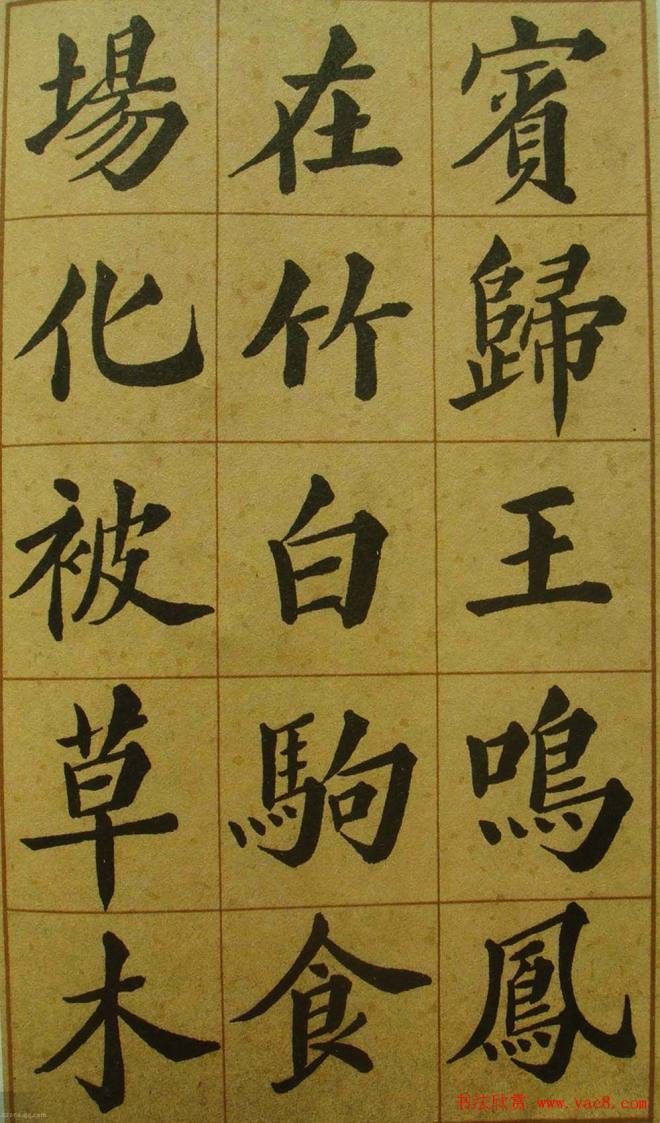 賓歸王鳴鳳
在竹白駒食
場化被草木
书法欣赏 www.yac8.com